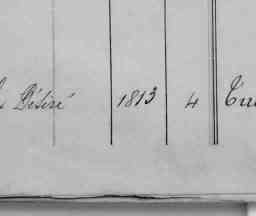 Désiré 1813 4